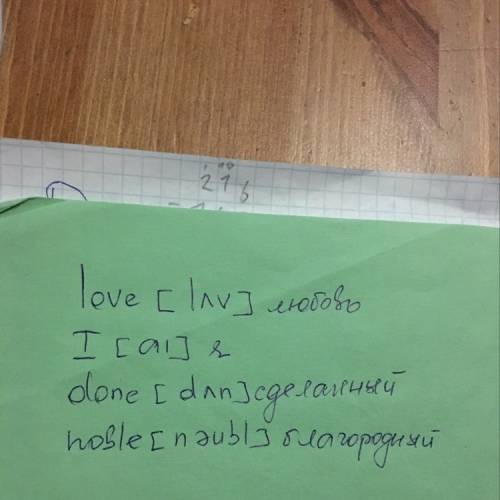 21 6
love [lʌv] любовь
I [aı] я
done [dʌn] сделанный
noble [nəubl] благородный